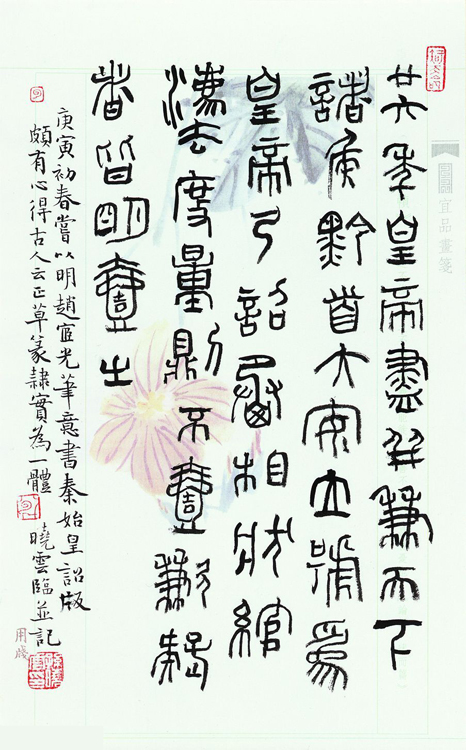 廿六年皇帝盡并兼天下
諸侯黔首大安立號為
皇帝乃詔丞相狀綰
灋度量則不壹歉疑
者皆明壹之
庚寅初春嘗以明趙宧光筆意書秦始皇詔版
頗有心得古人云正草篆隸實為一體 曉雲臨並記
宜品畫箋
用牋